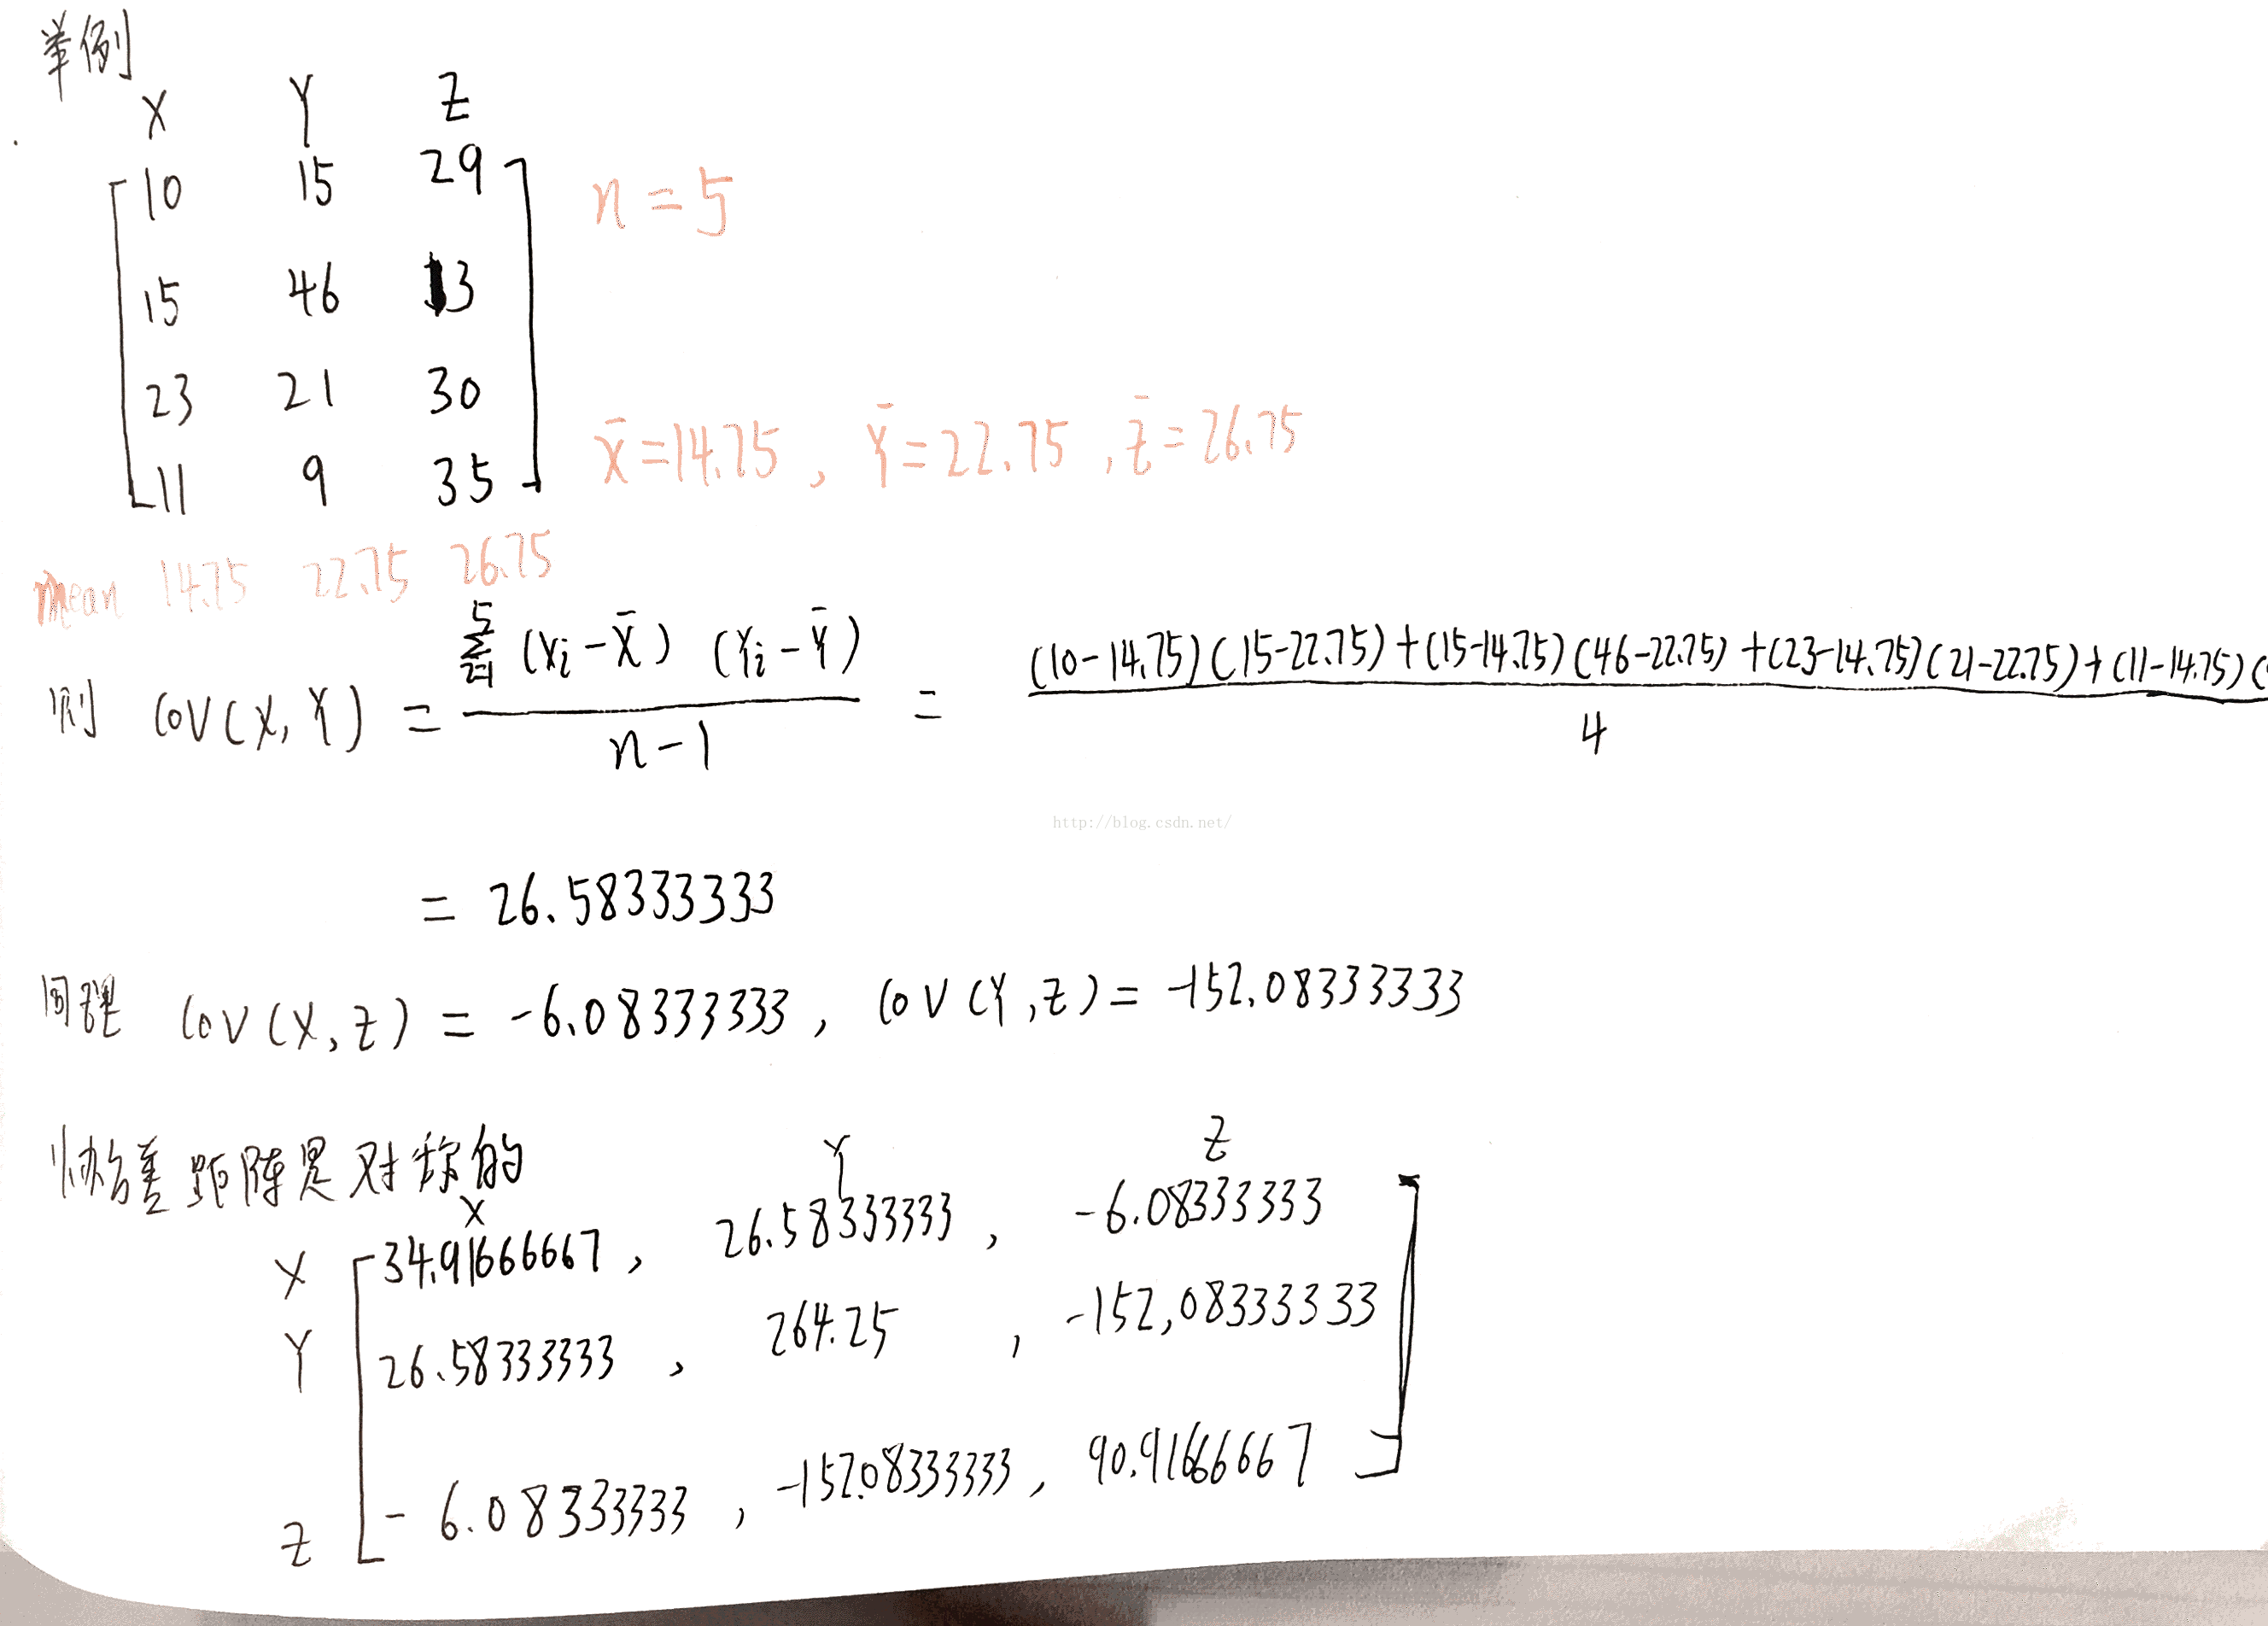 举例
X Y Z
10 15 29
n = 5
15 46 13
23 21 30
X̄=14.75 , Ȳ=22.75 , z̄=26.75
11 9 35
mean 14.75 22.75 26.75
则 COV(X,Y) = \frac{\sum_{i=1}^{5} (Xi-X̄) (Yi-Ȳ)}{n-1} = \frac{(10-14.75)(15-22.75)+(15-14.75)(46-22.75)+(23-14.75)(21-22.75)+(11-14.75)(}{4}
http://blog.csdn.net/
= 26.58333333
同理 COV(X,Z) = -6.08333333 , COV(Y,Z) = -152.08333333
协方差距阵是对称的
X Y Z
X 34.91666667 , 26.58333333 , -6.08333333
Y 26.58333333 , 264.25 , -152,08333333
Z -6.08333333 , -152.08333333 , 90.91666667